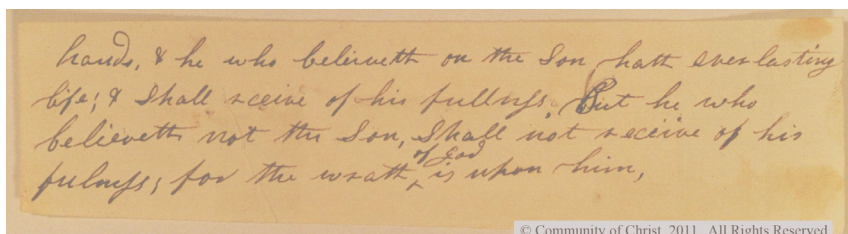 hands, & he who believeth on the Son hath everlasting
life; & Shall receive of his fullness. But he who
believeth not the Son, Shall not receive of his
of God
fulness; for the wrath ‸ is upon him,
© Community of Christ, 2011. All Rights Reserved